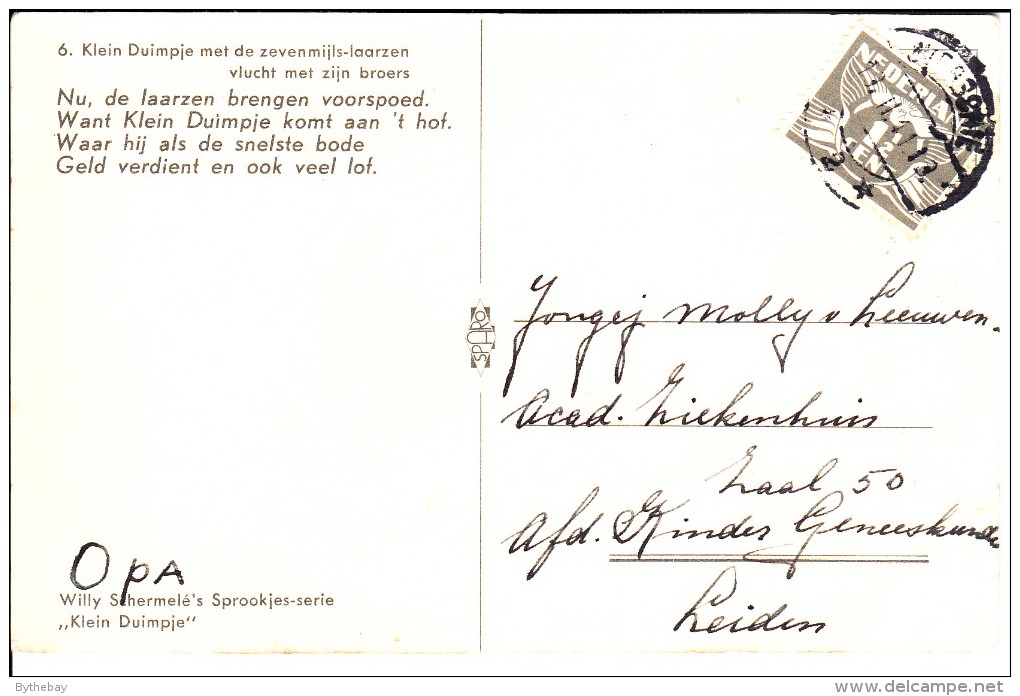 6. Klein Duimpje met de zevenmijls-laarzen
vlucht met zijn broers
Nu, de laarzen brengen voorspoed.
Want Klein Duimpje komt aan 't hof.
Waar hij als de snelste bode
Geld verdient en ook veel lof.
NEDERLAND
1½
CENT
2
SPARO
Jongej Molly v Leeuwen.
Acad. Ziekenhuis
Zaal 50
Afd. Kinder Geneeskunde
Leiden
Opa
Willy Schermelé's Sprookjes-serie
„Klein Duimpje"
Bythebay
www.delcampe.net